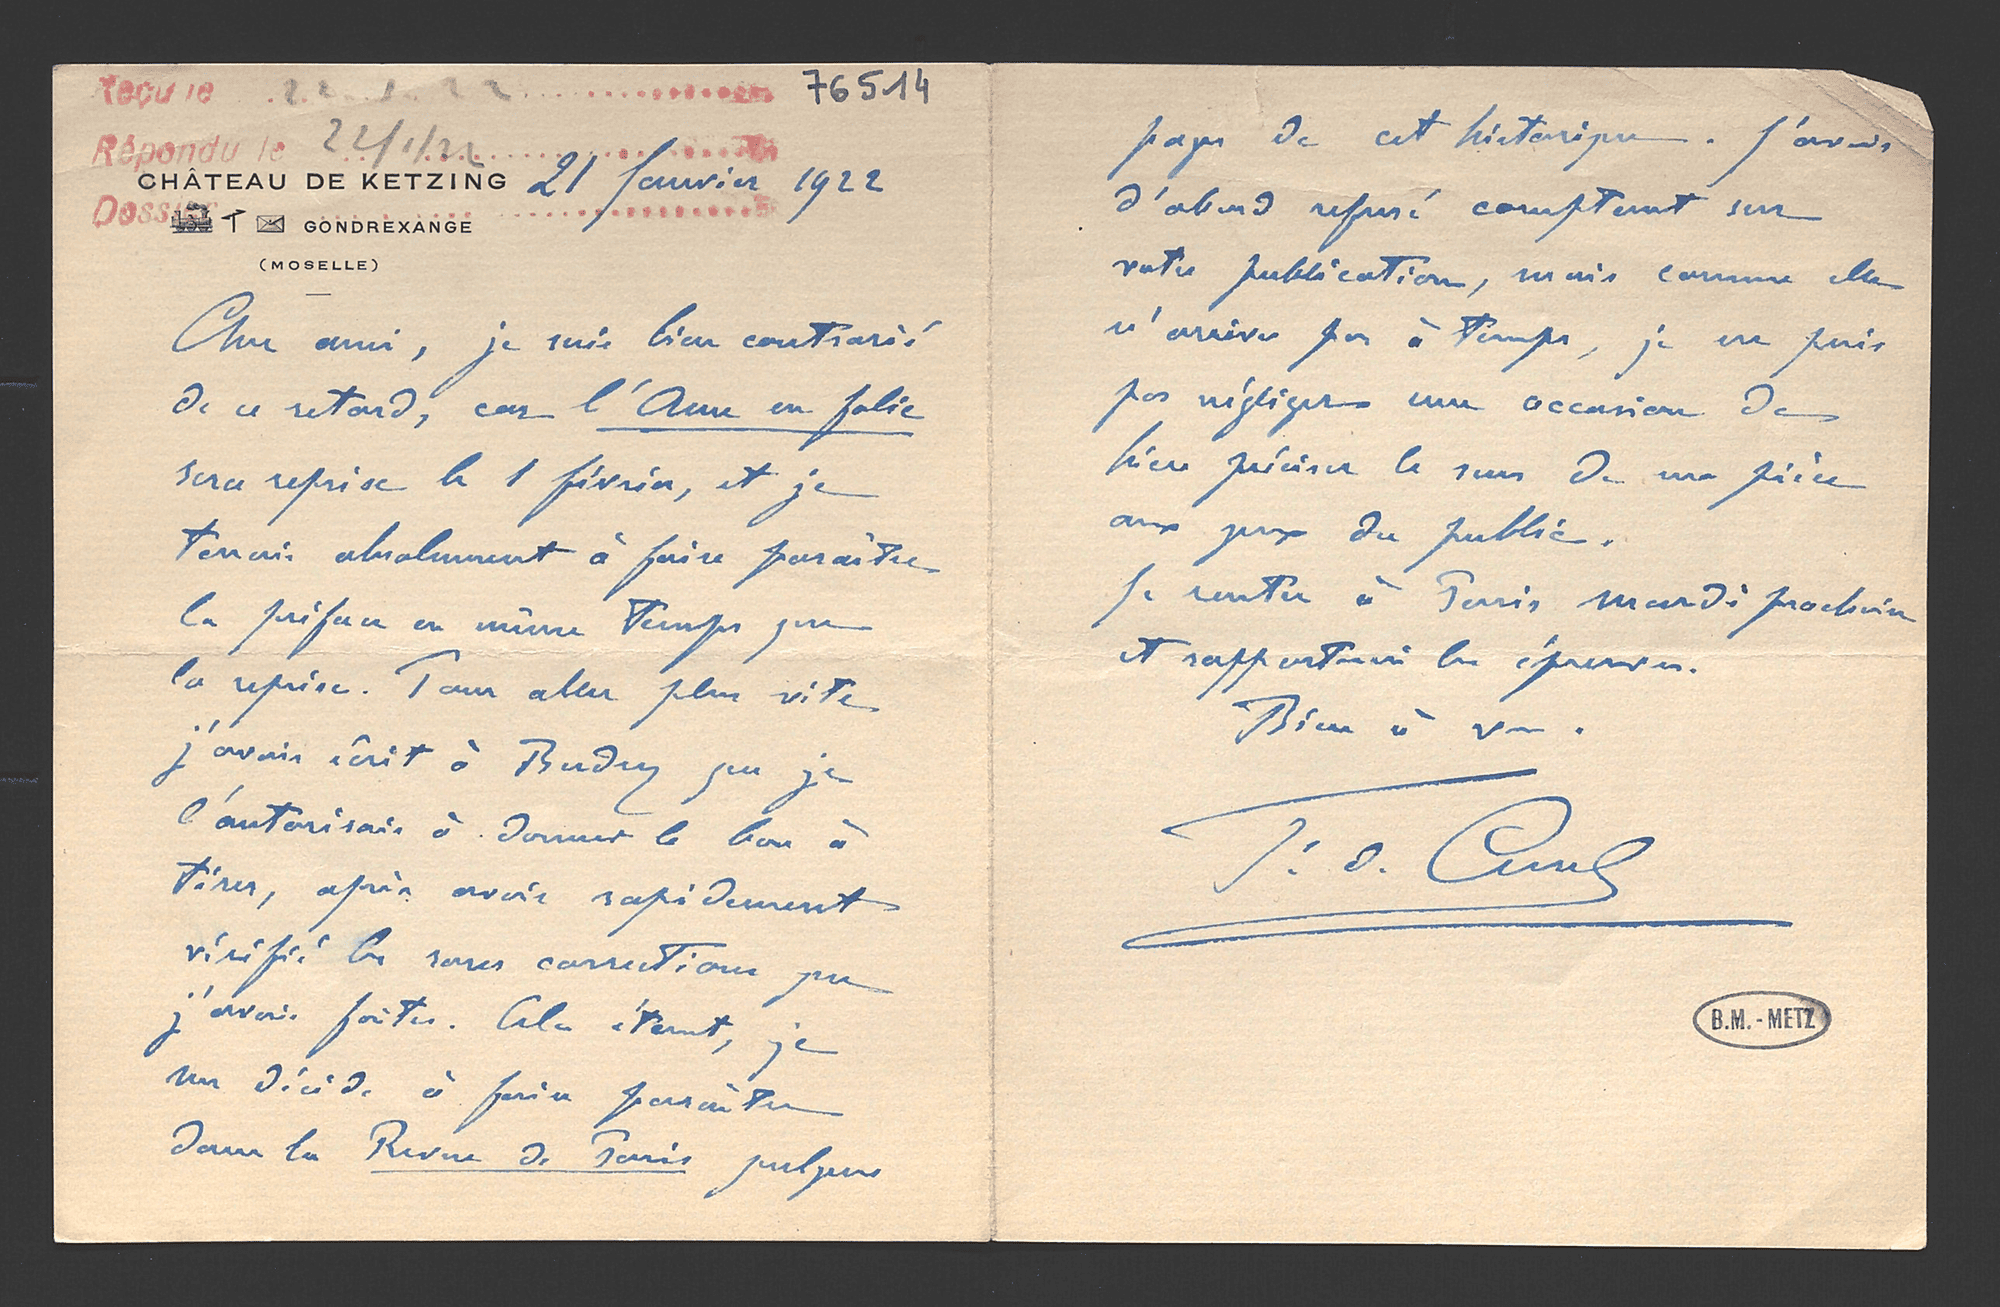 Reçu le 22.1.22
76514
Répondu le 22/1/22
CHÂTEAU DE KETZING
21 Janvier 1922
Dossier
GONDREXANGE
(MOSELLE)
Cher ami, je suis bien contrarié
de ce retard, car l'Ame en folie
sera reprise le 1 février, et je
tenais absolument à faire paraître
la préface en même temps que
la reprise. Pour aller plus vite
j'avais écrit à Budry que je
l'autorisais à donner le bon à
tirer, après avoir rapidement
vérifié les rares corrections que
j'avais faites. Cela étant, je
me décide à faire paraître
dans la Revue de Paris quelques
pages de cet historique. J'avais
d'abord refusé comptant sur
votre publication, mais comme elle
n'arrive pas à temps, je ne puis
pas négliger une occasion de
bien préciser le sens de ma pièce
aux yeux du public.
Je rentre à Paris mardi prochain
et rapporterai les épreuves.
Bien à vous.
F. d. Curel
B.M. - METZ